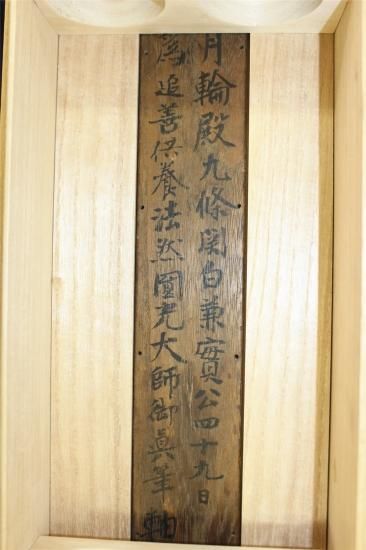 月輪殿九條関白兼實公四十九日
為追善供養法然圓光大師御真筆軸